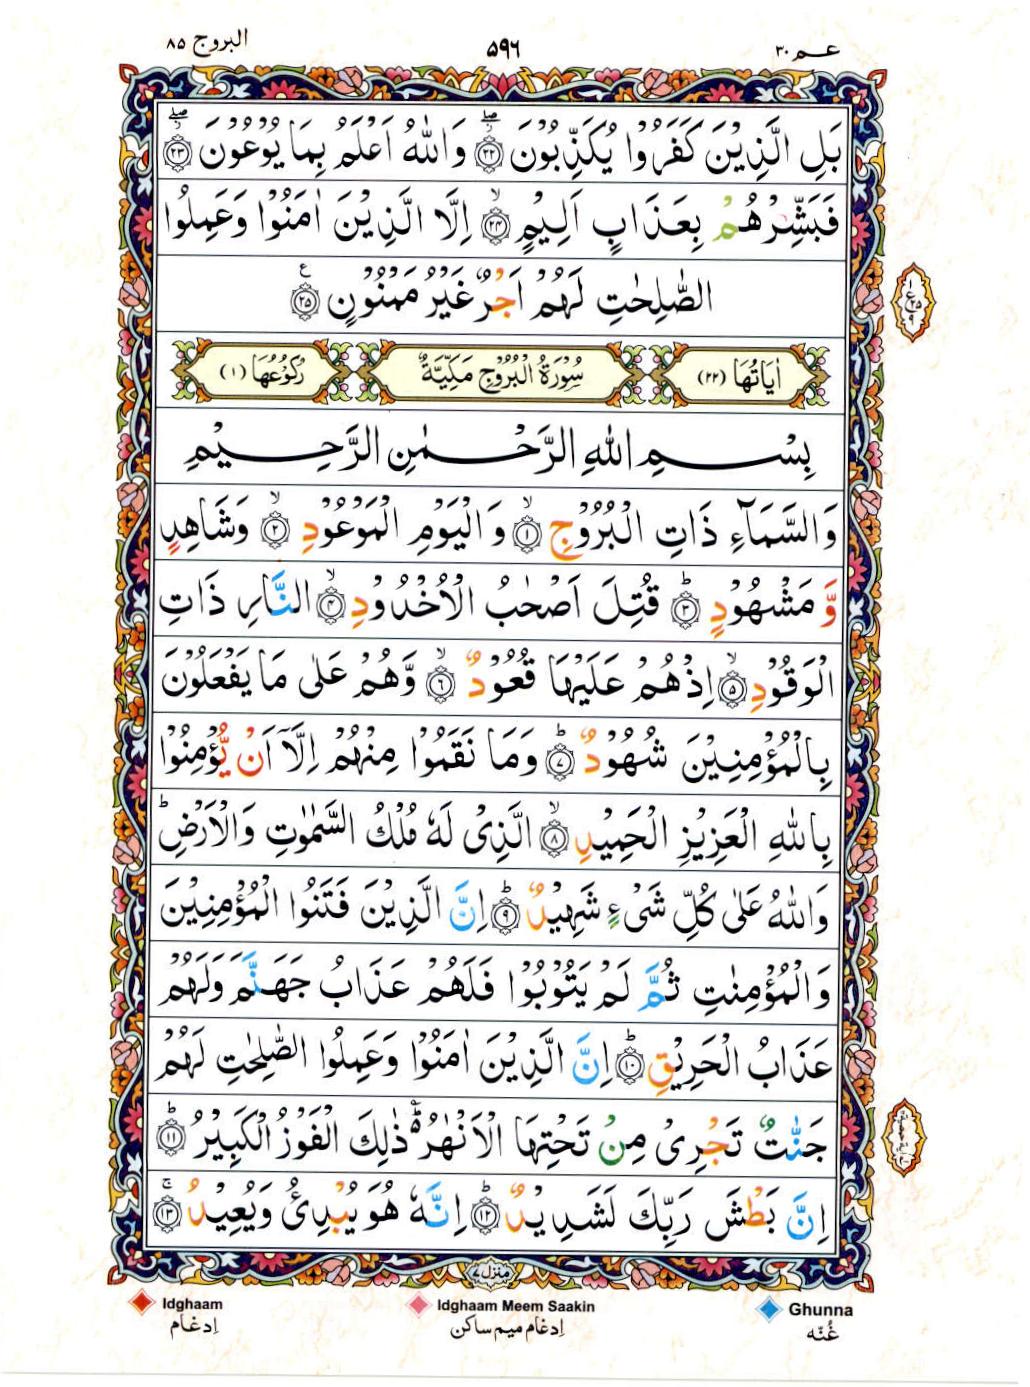 عم ٣٠
٥٩٦
البروج ٨٥
بَلِ الَّذِيْنَ كَفَرُوْا يُكَذِّبُوْنَ ﴿٢٢﴾ وَاللّٰهُ اَعْلَمُ بِمَا يُوْعُوْنَ ﴿٢٣﴾
فَبَشِّرْهُمْ بِعَذَابٍ اَلِيْمٍ ﴿٢٤﴾ اِلَّا الَّذِيْنَ اٰمَنُوْا وَعَمِلُوا
الصّٰلِحٰتِ لَهُمْ اَجْرٌ غَيْرُ مَمْنُوْنٍ ﴿٢٥﴾
اٰيَاتُهَا (٢٢)
سُوْرَةُ الْبُرُوْجِ مَكِّيَّةٌ
رُكُوْعُهَا (١)
بِسْمِ اللّٰهِ الرَّحْمٰنِ الرَّحِيْمِ
وَالسَّمَآءِ ذَاتِ الْبُرُوْجِ ﴿١﴾ وَالْيَوْمِ الْمَوْعُوْدِ ﴿٢﴾ وَشَاهِدٍ
وَّمَشْهُوْدٍ ﴿٣﴾ قُتِلَ اَصْحٰبُ الْاُخْدُوْدِ ﴿٤﴾ النَّارِ ذَاتِ
الْوَقُوْدِ ﴿٥﴾ اِذْ هُمْ عَلَيْهَا قُعُوْدٌ ﴿٦﴾ وَّهُمْ عَلٰى مَا يَفْعَلُوْنَ
بِالْمُؤْمِنِيْنَ شُهُوْدٌ ﴿٧﴾ وَمَا نَقَمُوْا مِنْهُمْ اِلَّآ اَنْ يُّؤْمِنُوْا
بِاللّٰهِ الْعَزِيْزِ الْحَمِيْدِ ﴿٨﴾ الَّذِيْ لَهٗ مُلْكُ السَّمٰوٰتِ وَالْاَرْضِ ؕ
وَاللّٰهُ عَلٰى كُلِّ شَيْءٍ شَهِيْدٌ ﴿٩﴾ اِنَّ الَّذِيْنَ فَتَنُوا الْمُؤْمِنِيْنَ
وَالْمُؤْمِنٰتِ ثُمَّ لَمْ يَتُوْبُوْا فَلَهُمْ عَذَابُ جَهَنَّمَ وَلَهُمْ
عَذَابُ الْحَرِيْقِ ﴿١٠﴾ اِنَّ الَّذِيْنَ اٰمَنُوْا وَعَمِلُوا الصّٰلِحٰتِ لَهُمْ
جَنّٰتٌ تَجْرِيْ مِنْ تَحْتِهَا الْاَنْهٰرُ ؕ ذٰلِكَ الْفَوْزُ الْكَبِيْرُ ﴿١١﴾
اِنَّ بَطْشَ رَبِّكَ لَشَدِيْدٌ ﴿١٢﴾ اِنَّهٗ هُوَ يُبْدِئُ وَيُعِيْدُ ﴿١٣﴾
منزل ٧
Idghaam
Idghaam Meem Saakin
Ghunna
اِدغام
اِدغام میم ساکن
غُنّه